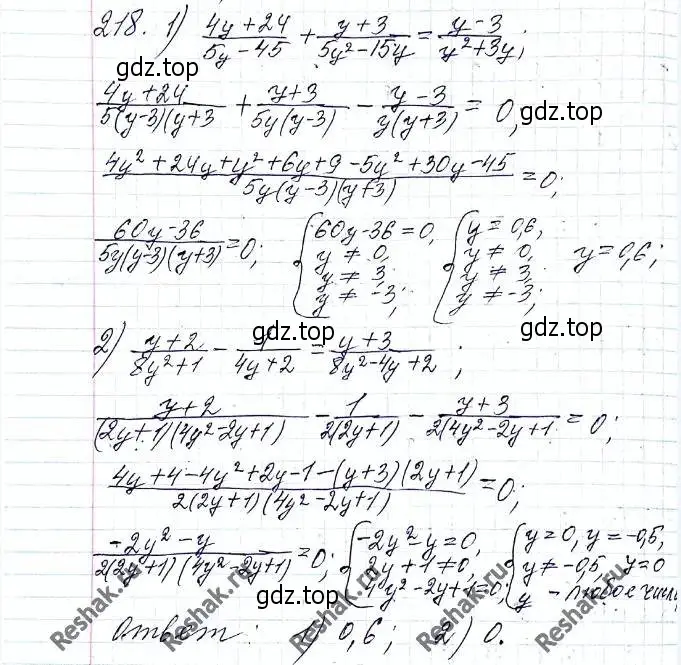 218. 1) (4y+24)/(5y-45) + (y+3)/(5y²-15y) = (y-3)/(y²+3y);
gdz.top
(4y+24)/(5(y-3)(y+3) + (y+3)/(5y(y-3)) - (y-3)/(y(y+3)) = 0;
gdz.top
gdz.top
(4y²+24y+y²+6y+9-5y²+30y-45)/(5y(y-3)(y+3)) = 0;
(60y-36)/(5y(y-3)(y+3)) = 0; { 60y-36=0, y≠0, y≠3; y≠-3; { y=0,6, y≠0, y≠3; y≠-3; y=0,6;
gdz.top
gdz.top
2) (y+2)/(8y²+1) - 1/(4y+2) = (y+3)/(8y²-4y+2);
(y+2)/((2y+1)(4y²-2y+1)) - 1/(2(2y+1)) - (y+3)/(2(4y²-2y+1) = 0;
gdz.top
gdz.top
(4y+4-4y²+2y-1-(y+3)(2y+1))/(2(2y+1)(4y²-2y+1)) = 0;
(-2y²-y)/(2(2y+1)(4y²-2y+1)) = 0; { -2y²-y=0, 2y+1≠0, 4y²-2y+1=0; { y=0, y=-0,5, y≠-0,5, y=0 y - любое число
gdz.top
Ответ: 1) 0,6; 2) 0.
Reshak.ru
Reshak.ru
Reshak.ru
Reshak.ru
Reshak.ru